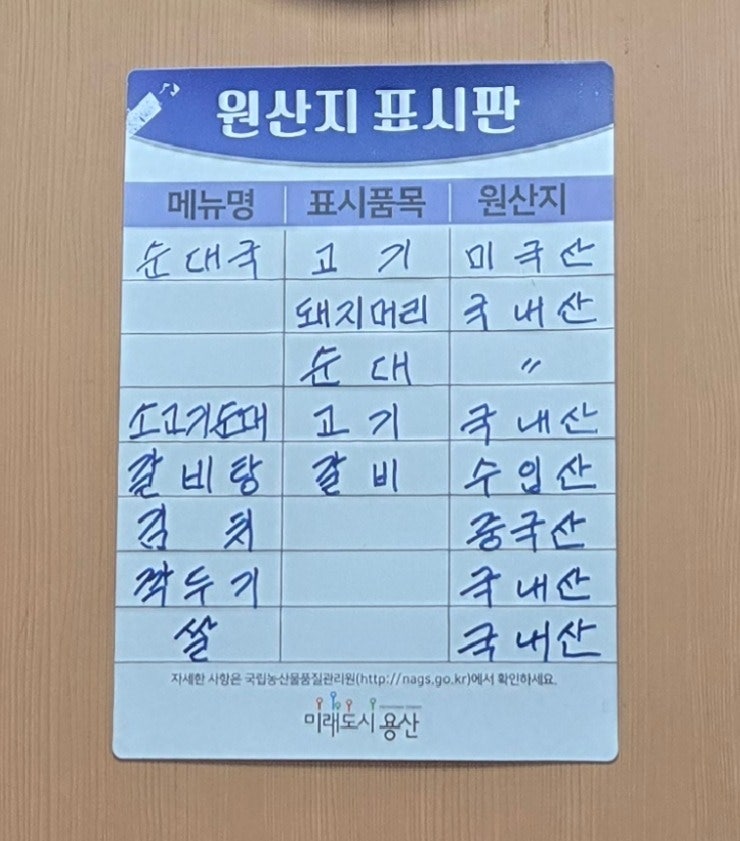 원산지 표시판
메뉴명 표시품목 원산지
순대국 고기 미국산
돼지머리 국내산
순대 〃
소고기순대 고기 국내산
갈비탕 갈비 수입산
김치 중국산
깍두기 국내산
쌀 국내산
자세한 사항은 국립농산물품질관리원(http://nags.go.kr)에서 확인하세요.
미래도시 용산